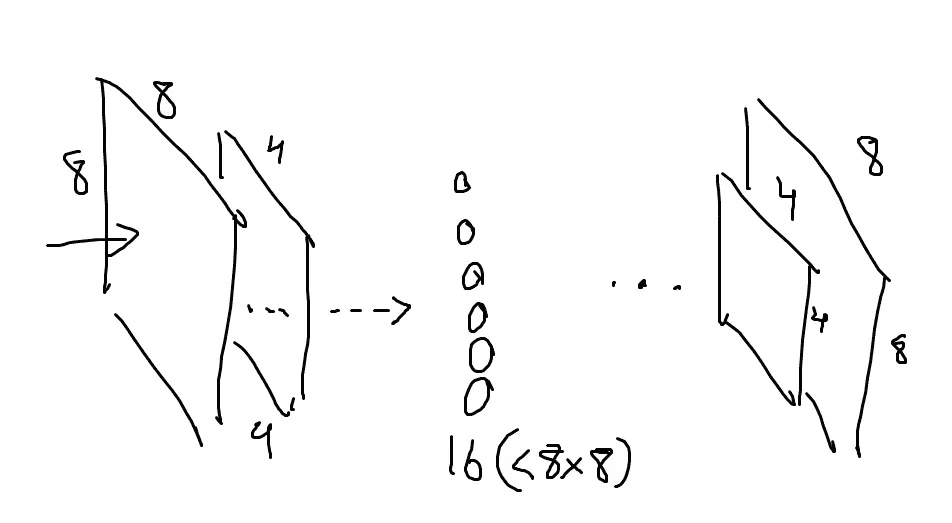 8
8
4
4
16 (<8×8)
4
8
4
8